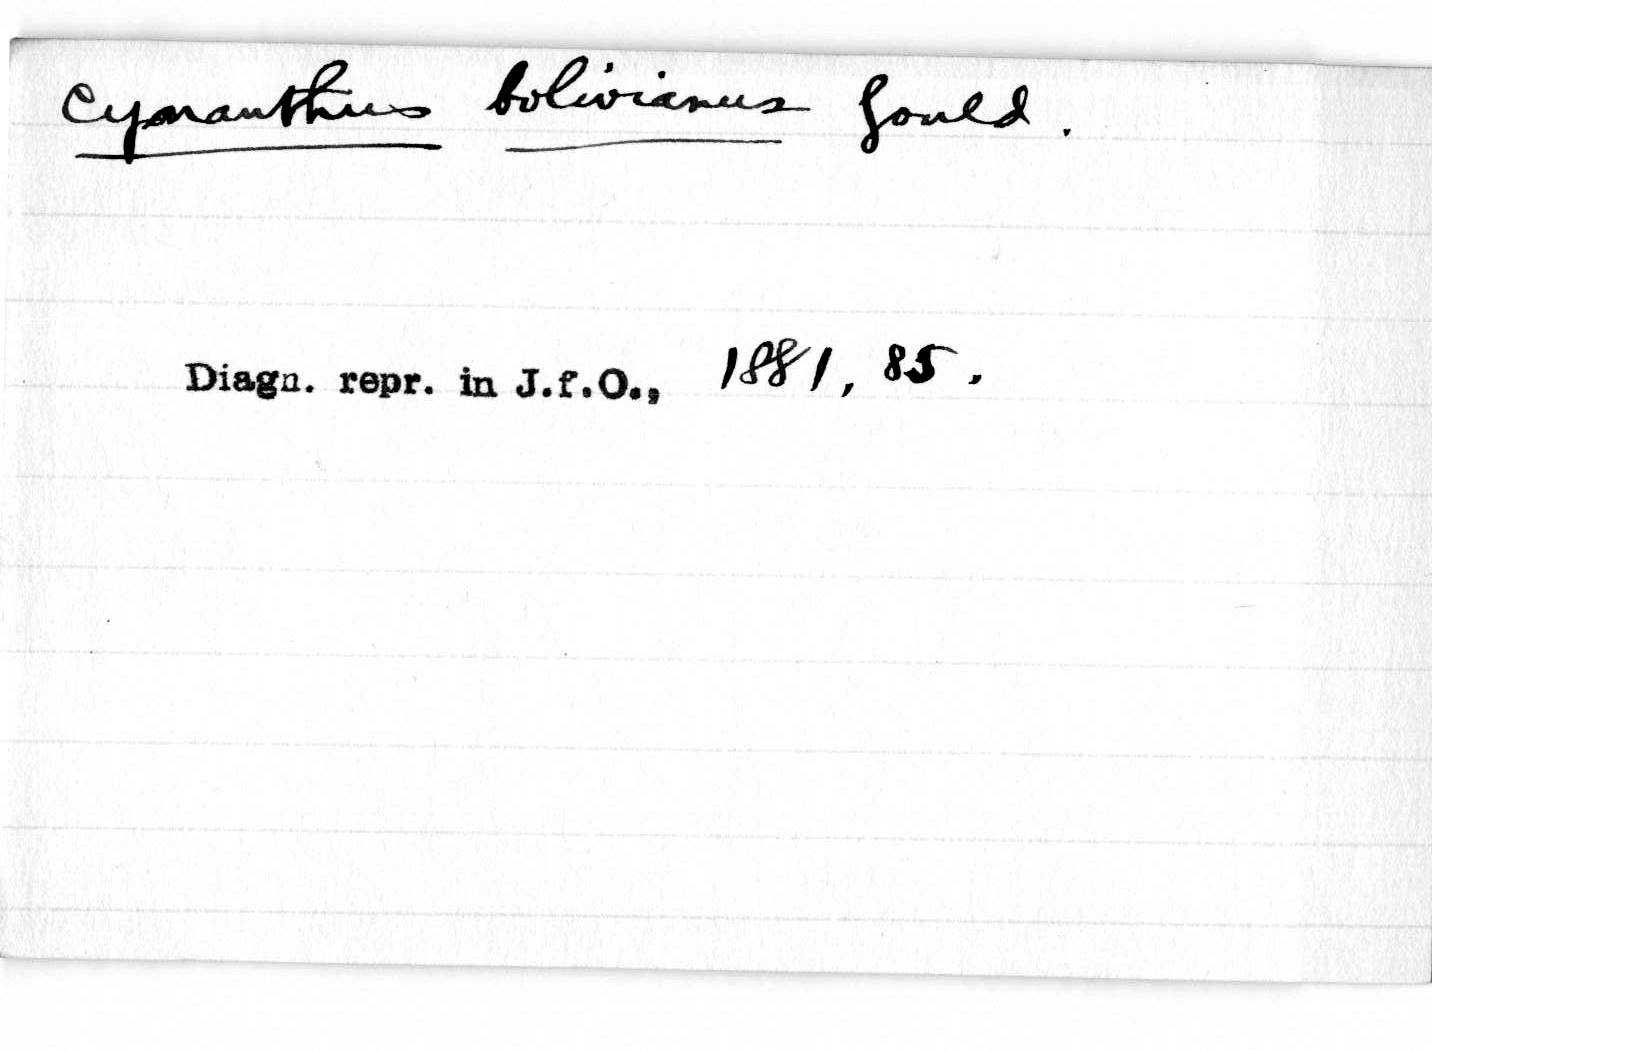 Cynanthus bolivianus Gould.
Diagn. repr. in J.f.O., 1881, 85.